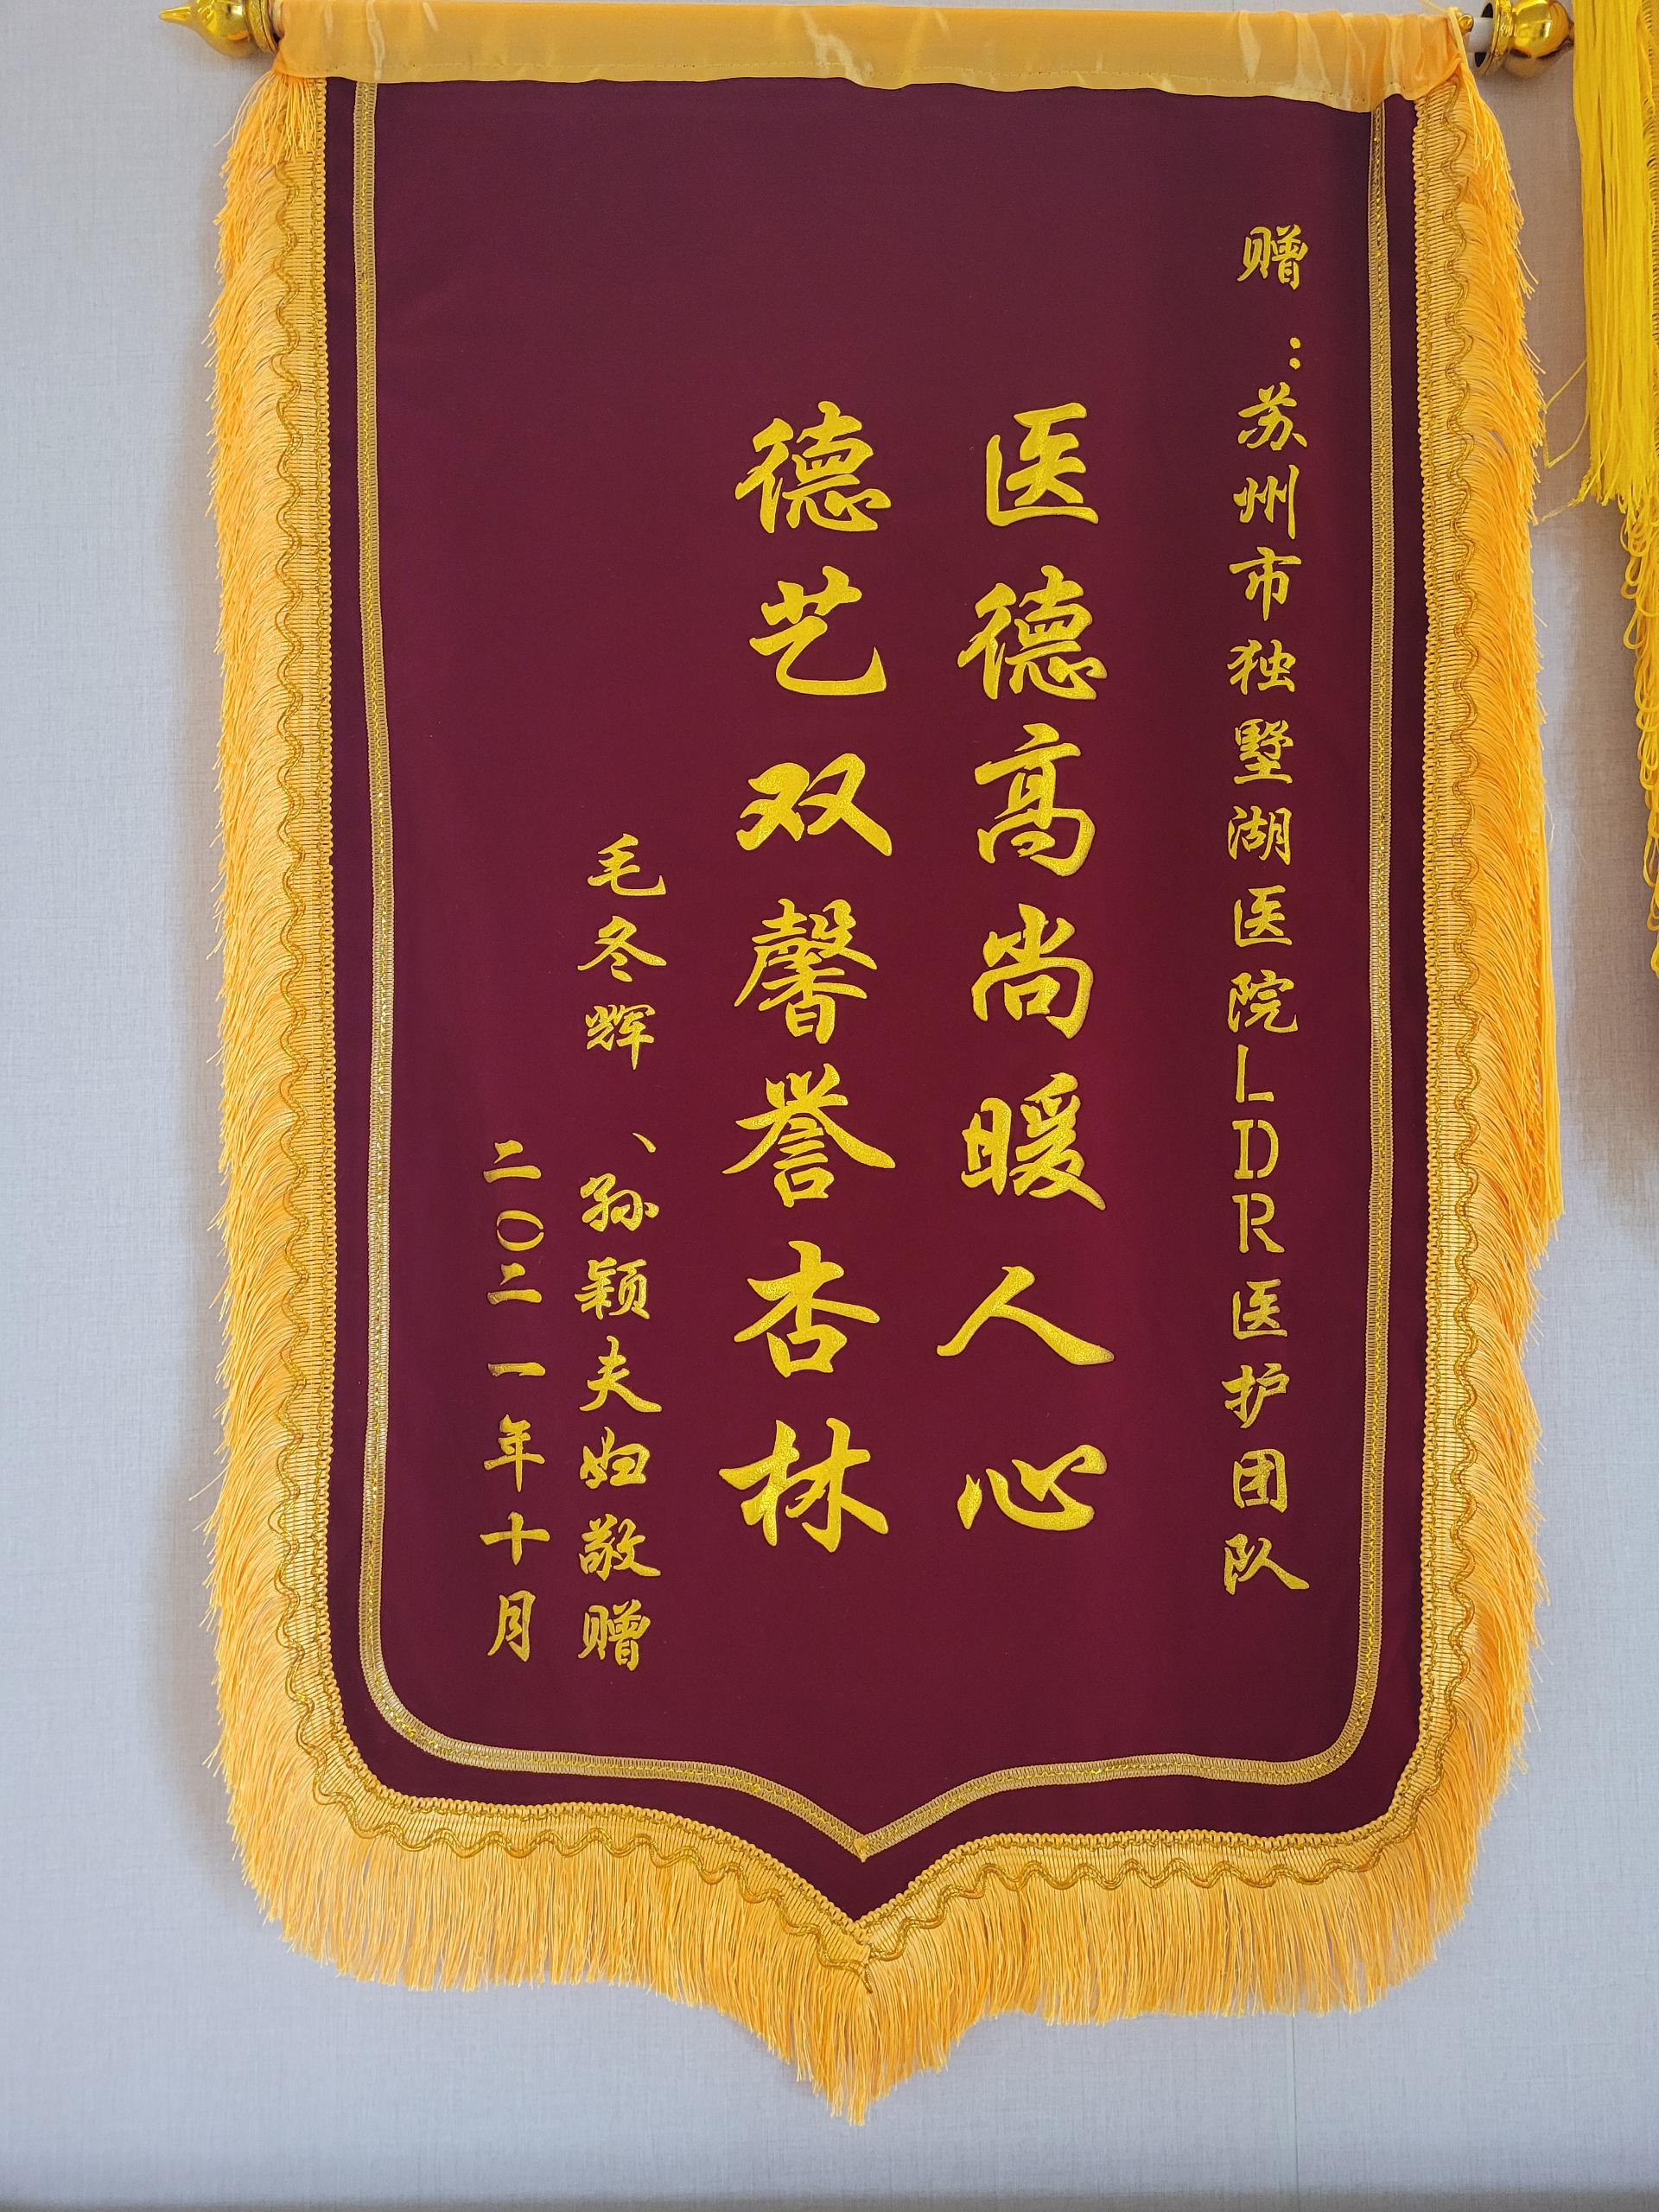 赠：苏州市独墅湖医院LDR医护团队
医德高尚暖人心
德艺双馨誉杏林
毛冬辉、孙颖夫妇敬赠
二〇二一年十月